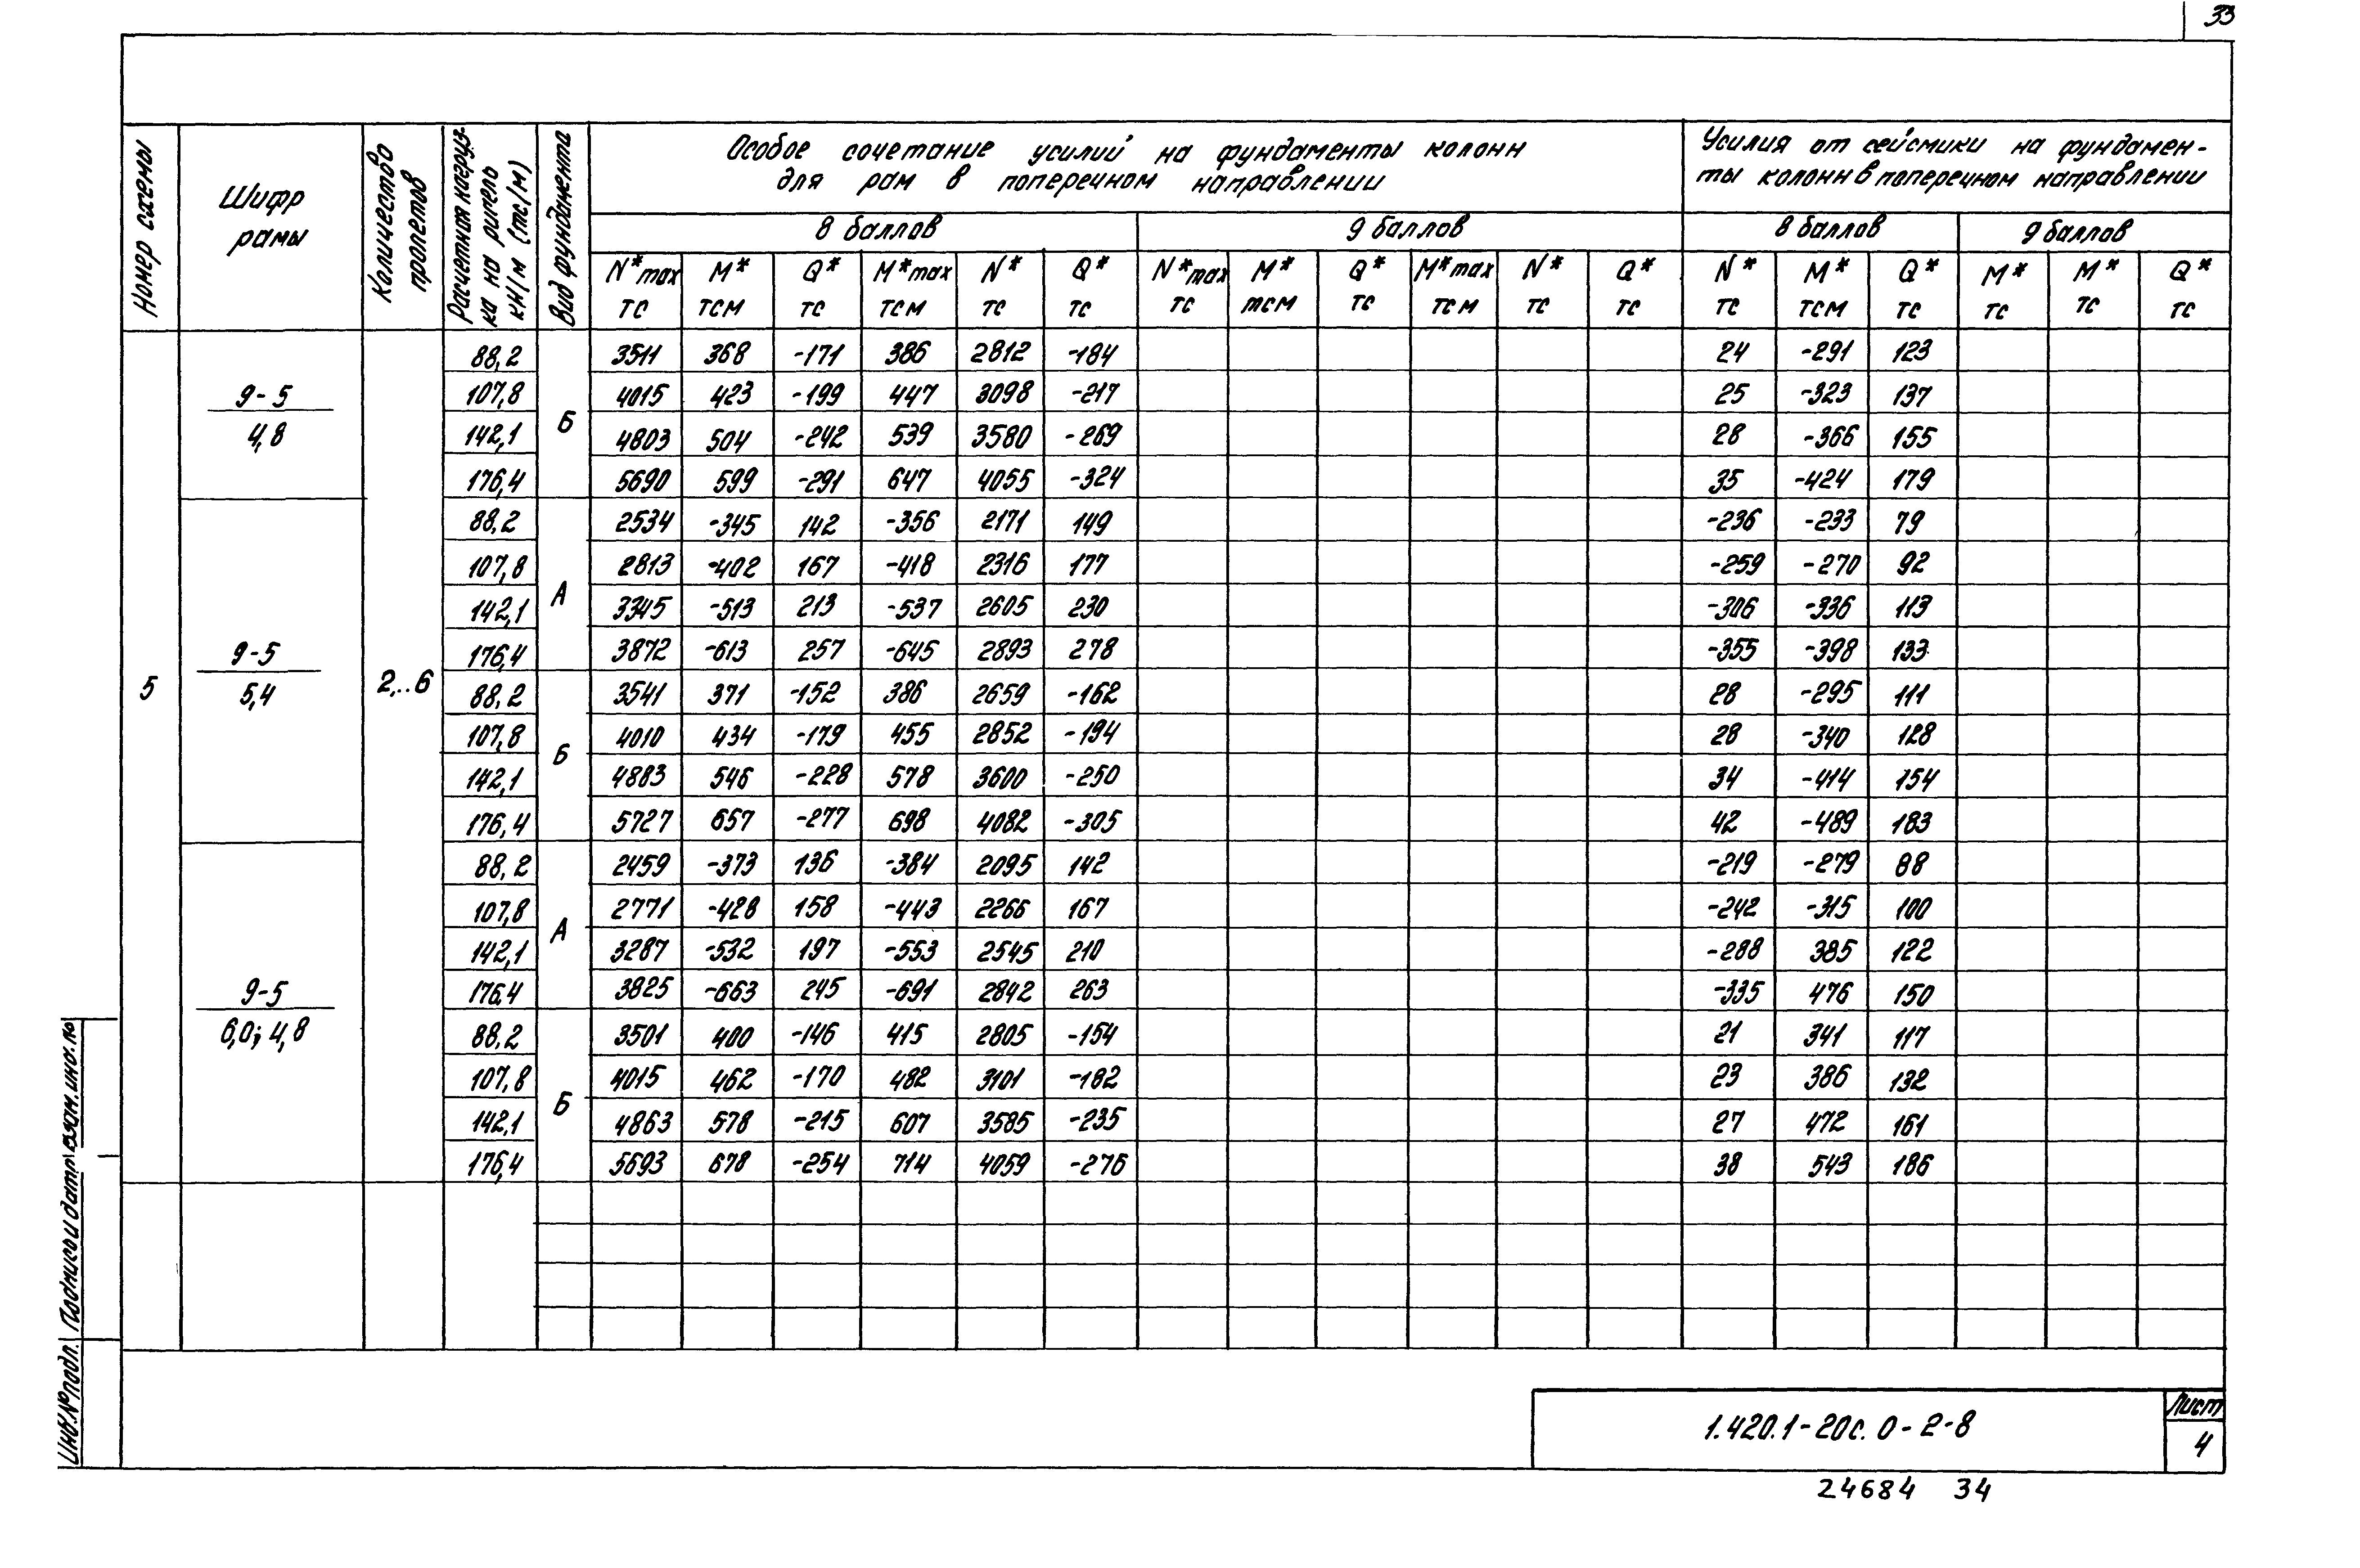 33
Номер схемы
Шифр рамы
Количество пролетов
Расчетная нагрузка на ригель кн/м (тс/м)
Вид фундамента
Особое сочетание усилий на фундаменты колонн
для рам в поперечном направлении
Усилия от сейсмики на фундамен-
ты колонн в поперечном направлении
8 баллов 9 баллов 8 баллов 9 баллов
N*max M* Q* M*max N* Q* N*max M* Q* M*max N* Q* N* M* Q* M* M* Q*
тс тсм тс тсм тс тс тс тсм тс тсм тс тс тс тсм тс тс тс тс
88,2 3511 368 -171 386 2812 -184 24 -291 123
9-5 107,8 4015 423 -199 447 3098 -217 25 -323 137
4,8 142,1 Б 4803 504 -242 539 3580 -269 28 -366 155
176,4 5690 599 -291 647 4055 -324 35 -424 179
88,2 2534 -345 142 -356 2171 149 -236 -233 79
107,8 2813 -402 167 -418 2316 177 -259 -270 92
142,1 А 3345 -513 213 -537 2605 230 -306 -336 113
9-5 176,4 3872 -613 257 -645 2893 278 -355 -398 133
5 5,4 2...6 88,2 3541 371 -152 386 2659 -162 28 -295 111
107,8 4010 434 -179 455 2852 -194 28 -340 128
142,1 Б 4883 546 -228 578 3600 -250 34 -414 154
176,4 5727 657 -277 698 4082 -305 42 -489 183
88,2 2459 -373 136 -384 2095 142 -219 -279 88
107,8 2771 -428 158 -443 2266 167 -242 -315 100
142,1 А 3287 -532 197 -553 2545 210 -288 385 122
9-5 176,4 3825 -663 245 -691 2842 263 -335 476 150
6,0; 4,8 88,2 3501 400 -146 415 2805 -154 21 341 117
107,8 4015 462 -170 482 3101 -182 23 386 132
142,1 Б 4863 578 -215 607 3585 -235 27 472 161
176,4 5693 678 -254 714 4059 -276 38 543 186
Инв.№ подл. Подпись и дата Взам.инв.№
1.420.1-20с. 0-2-8
Лист
4
24684 34